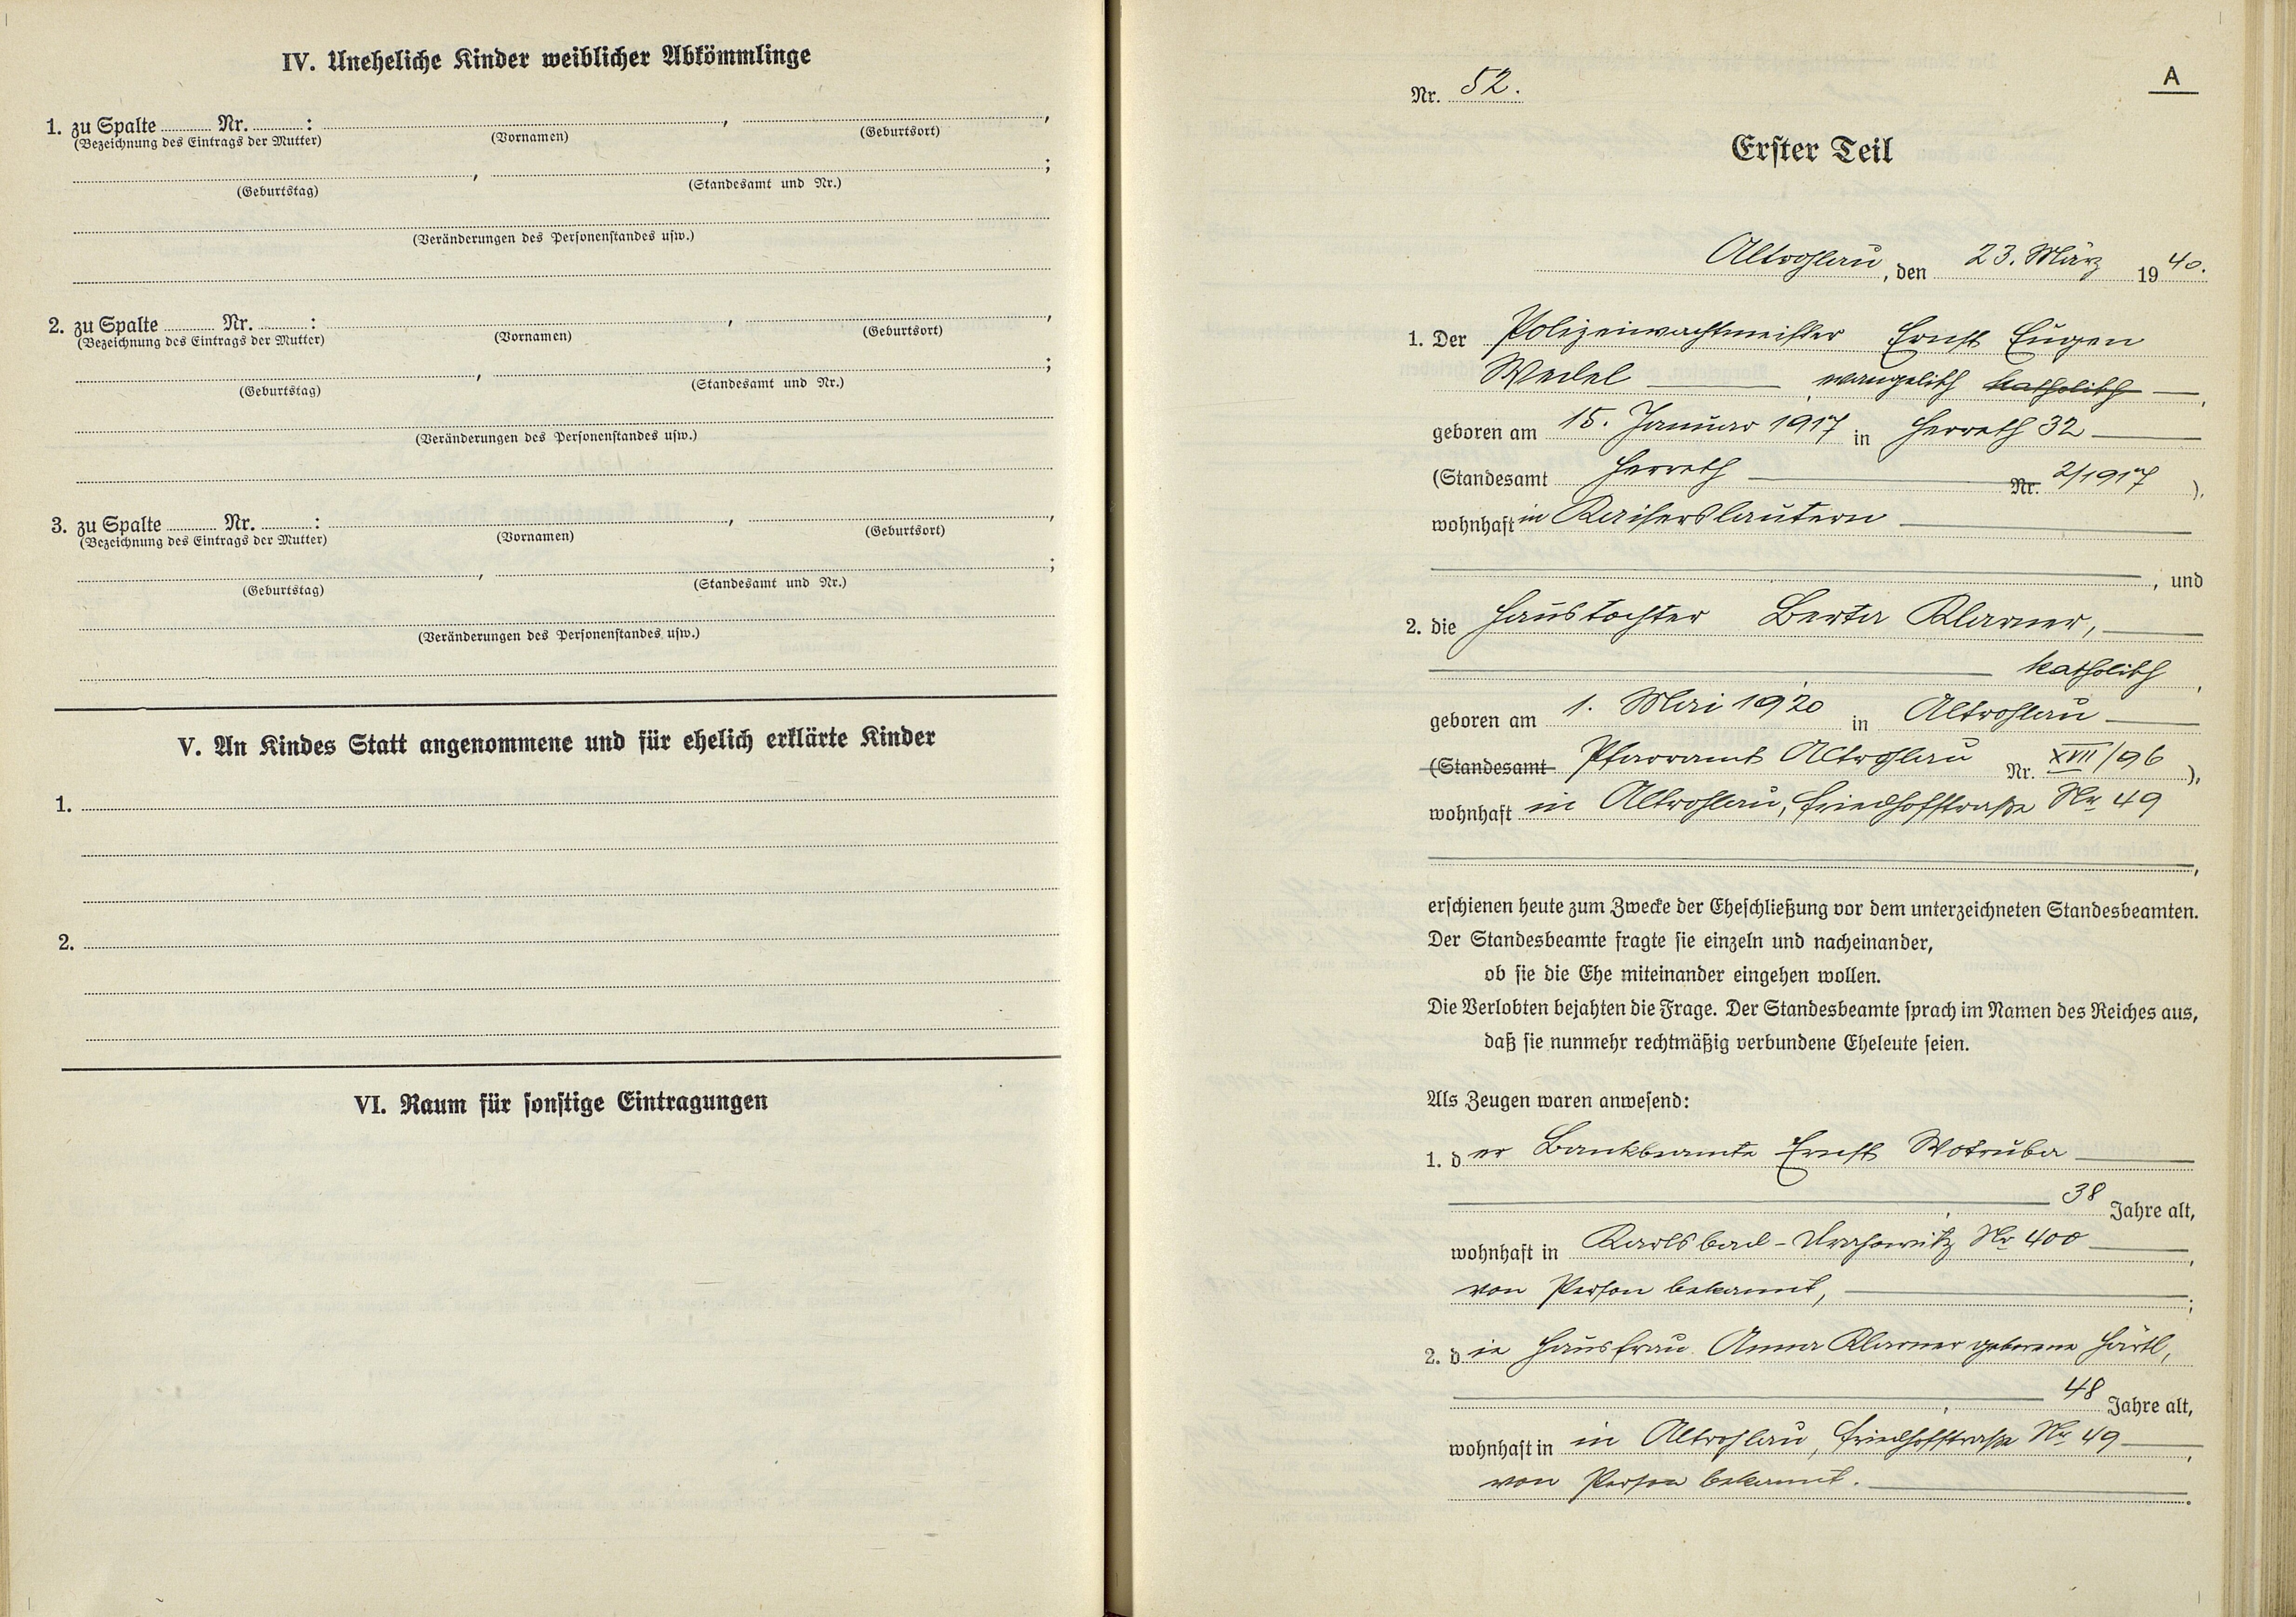 IV. Uneheliche Kinder weiblicher Abkömmlinge
1. zu Spalte ........ Nr. ........ :
(Bezeichnung des Eintrags der Mutter) (Vornamen) (Geburtsort)
(Geburtstag) (Standesamt und Nr.)
(Veränderungen des Personenstandes usw.)
2. zu Spalte ........ Nr. ........ :
(Bezeichnung des Eintrags der Mutter) (Vornamen) (Geburtsort)
(Geburtstag) (Standesamt und Nr.)
(Veränderungen des Personenstandes usw.)
3. zu Spalte ........ Nr. ........ :
(Bezeichnung des Eintrags der Mutter) (Vornamen) (Geburtsort)
(Geburtstag) (Standesamt und Nr.)
(Veränderungen des Personenstandes usw.)
V. An Kindes Statt angenommene und für ehelich erklärte Kinder
1.
2.
VI. Raum für sonstige Eintragungen
A
Nr. 52.
Erster Teil
Altrohlau, den 23. März 1940.
1. Der Polizeiwachtmeister Ernst Eugen
Wedel evangelisch katholisch,
geboren am 15. Januar 1917 in Herreth 32
(Standesamt Herreth Nr. 2/1917),
wohnhaft in Kaiserslautern
, und
2. die Haustochter Berta Klarner,
katholisch,
geboren am 1. Mai 1920 in Altrohlau
(Standesamt Pfarramt Altrohlau Nr. XVII/96),
wohnhaft in Altrohlau, Friedhofstraße Nr 49
erschienen heute zum Zwecke der Eheschließung vor dem unterzeichneten Standesbeamten.
Der Standesbeamte fragte sie einzeln und nacheinander,
ob sie die Ehe miteinander eingehen wollen.
Die Verlobten bejahten die Frage. Der Standesbeamte sprach im Namen des Reiches aus,
daß sie nunmehr rechtmäßig verbundene Eheleute seien.
Als Zeugen waren anwesend:
1. der Bankbeamte Ernst Wotruba
38 Jahre alt,
wohnhaft in Karlsbad-Drahowitz Nr 400,
von Person bekannt,;
2. die Hausfrau Anna Klarner geborene Härtl,
48 Jahre alt,
wohnhaft in in Altrohlau, Friedhofstraße Nr. 49,
von Person bekannt.